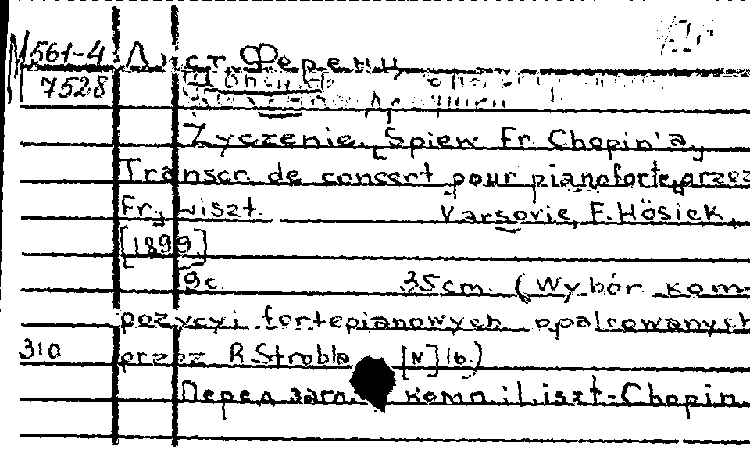 М 561-4 Лист Ференц
7528
Życzenie. Śpiew Fr. Chopin'a,
Transcr. de concert pour pianoforte, przez
Fr. Liszt. Varsovie, F. Hösick,
[1899]
9 c. 35 cm. (Wybór kom-
pozycyi fortepianowych opalcowanych
310 przez R. Strobla [N] 16.)
Перед загл. комп.: Liszt-Chopin